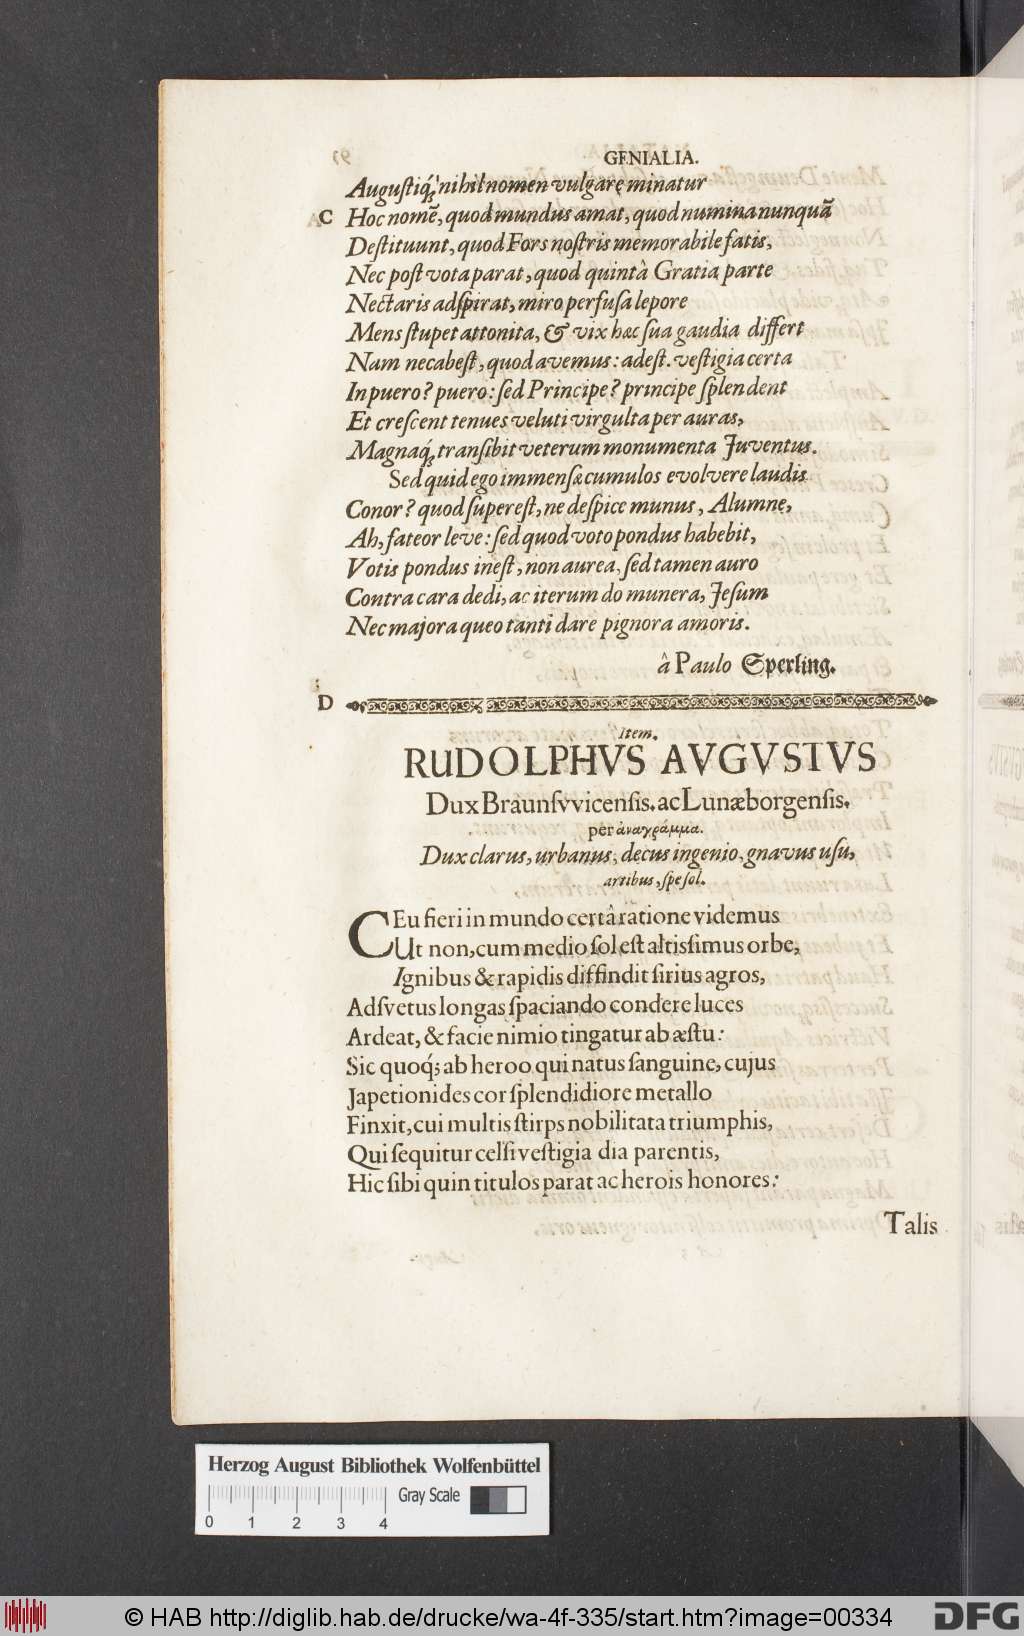 GENIALIA.
Auguſtiq́ꝫ nihil nomen vulgarę minatur
C Hoc nomē, quod mundus amat, quod numina nunquā
Deſtituunt, quod Fors noſtris memorabile fatis,
Nec poſt vota parat, quod quintâ Gratia parte
Nectaris adſpirat, miro perfuſa lepore
Mens ſtupet attonita, & vix hæc ſua gaudia differt
Nam nec abeſt, quod avemus: adeſt. veſtigia certa
In puero? puero: ſed Principe? principe ſplendent
Et creſcent tenues veluti virgulta per auras,
Magnaq́ꝫ tranſibit veterum monumenta Juventus.
Sed quid ego immenſæ cumulos evolvere laudis
Conor? quod ſupereſt, ne deſpice munus, Alumne,
Ah, fateor leve: ſed quod voto pondus habebit,
Votis pondus ineſt, non aurea, ſed tamen auro
Contra cara dedi, ac iterum do munera, Jeſum
Nec majora queo tanti dare pignora amoris.
â Paulo Sperling.
D
Item.
RUDOLPHVS AVGVSTVS
Dux Braunſvvicenſis. ac Lunæborgenſis.
per ἀναγράμμα.
Dux clarus, urbanus, decus ingenio, gnavus uſu,
artibus, ſpe ſol.
CEu fieri in mundo certâ ratione videmus
Ut non, cum medio ſol eſt altisſimus orbe,
Ignibus & rapidis diffindit ſirius agros,
Adſvetus longas ſpaciando condere luces
Ardeat, & facie nimio tingatur ab æſtu:
Sic quoq́ꝫ ab heroo qui natus ſanguine, cujus
Japetionides cor ſplendidiore metallo
Finxit, cui multis ſtirps nobilitata triumphis,
Qui ſequitur celſi veſtigia dia parentis,
Hic ſibi quin titulos parat ac herois honores:
Talis
Herzog August Bibliothek Wolfenbüttel
Gray Scale
0 1 2 3 4
© HAB http://diglib.hab.de/drucke/wa-4f-335/start.htm?image=00334
DFG